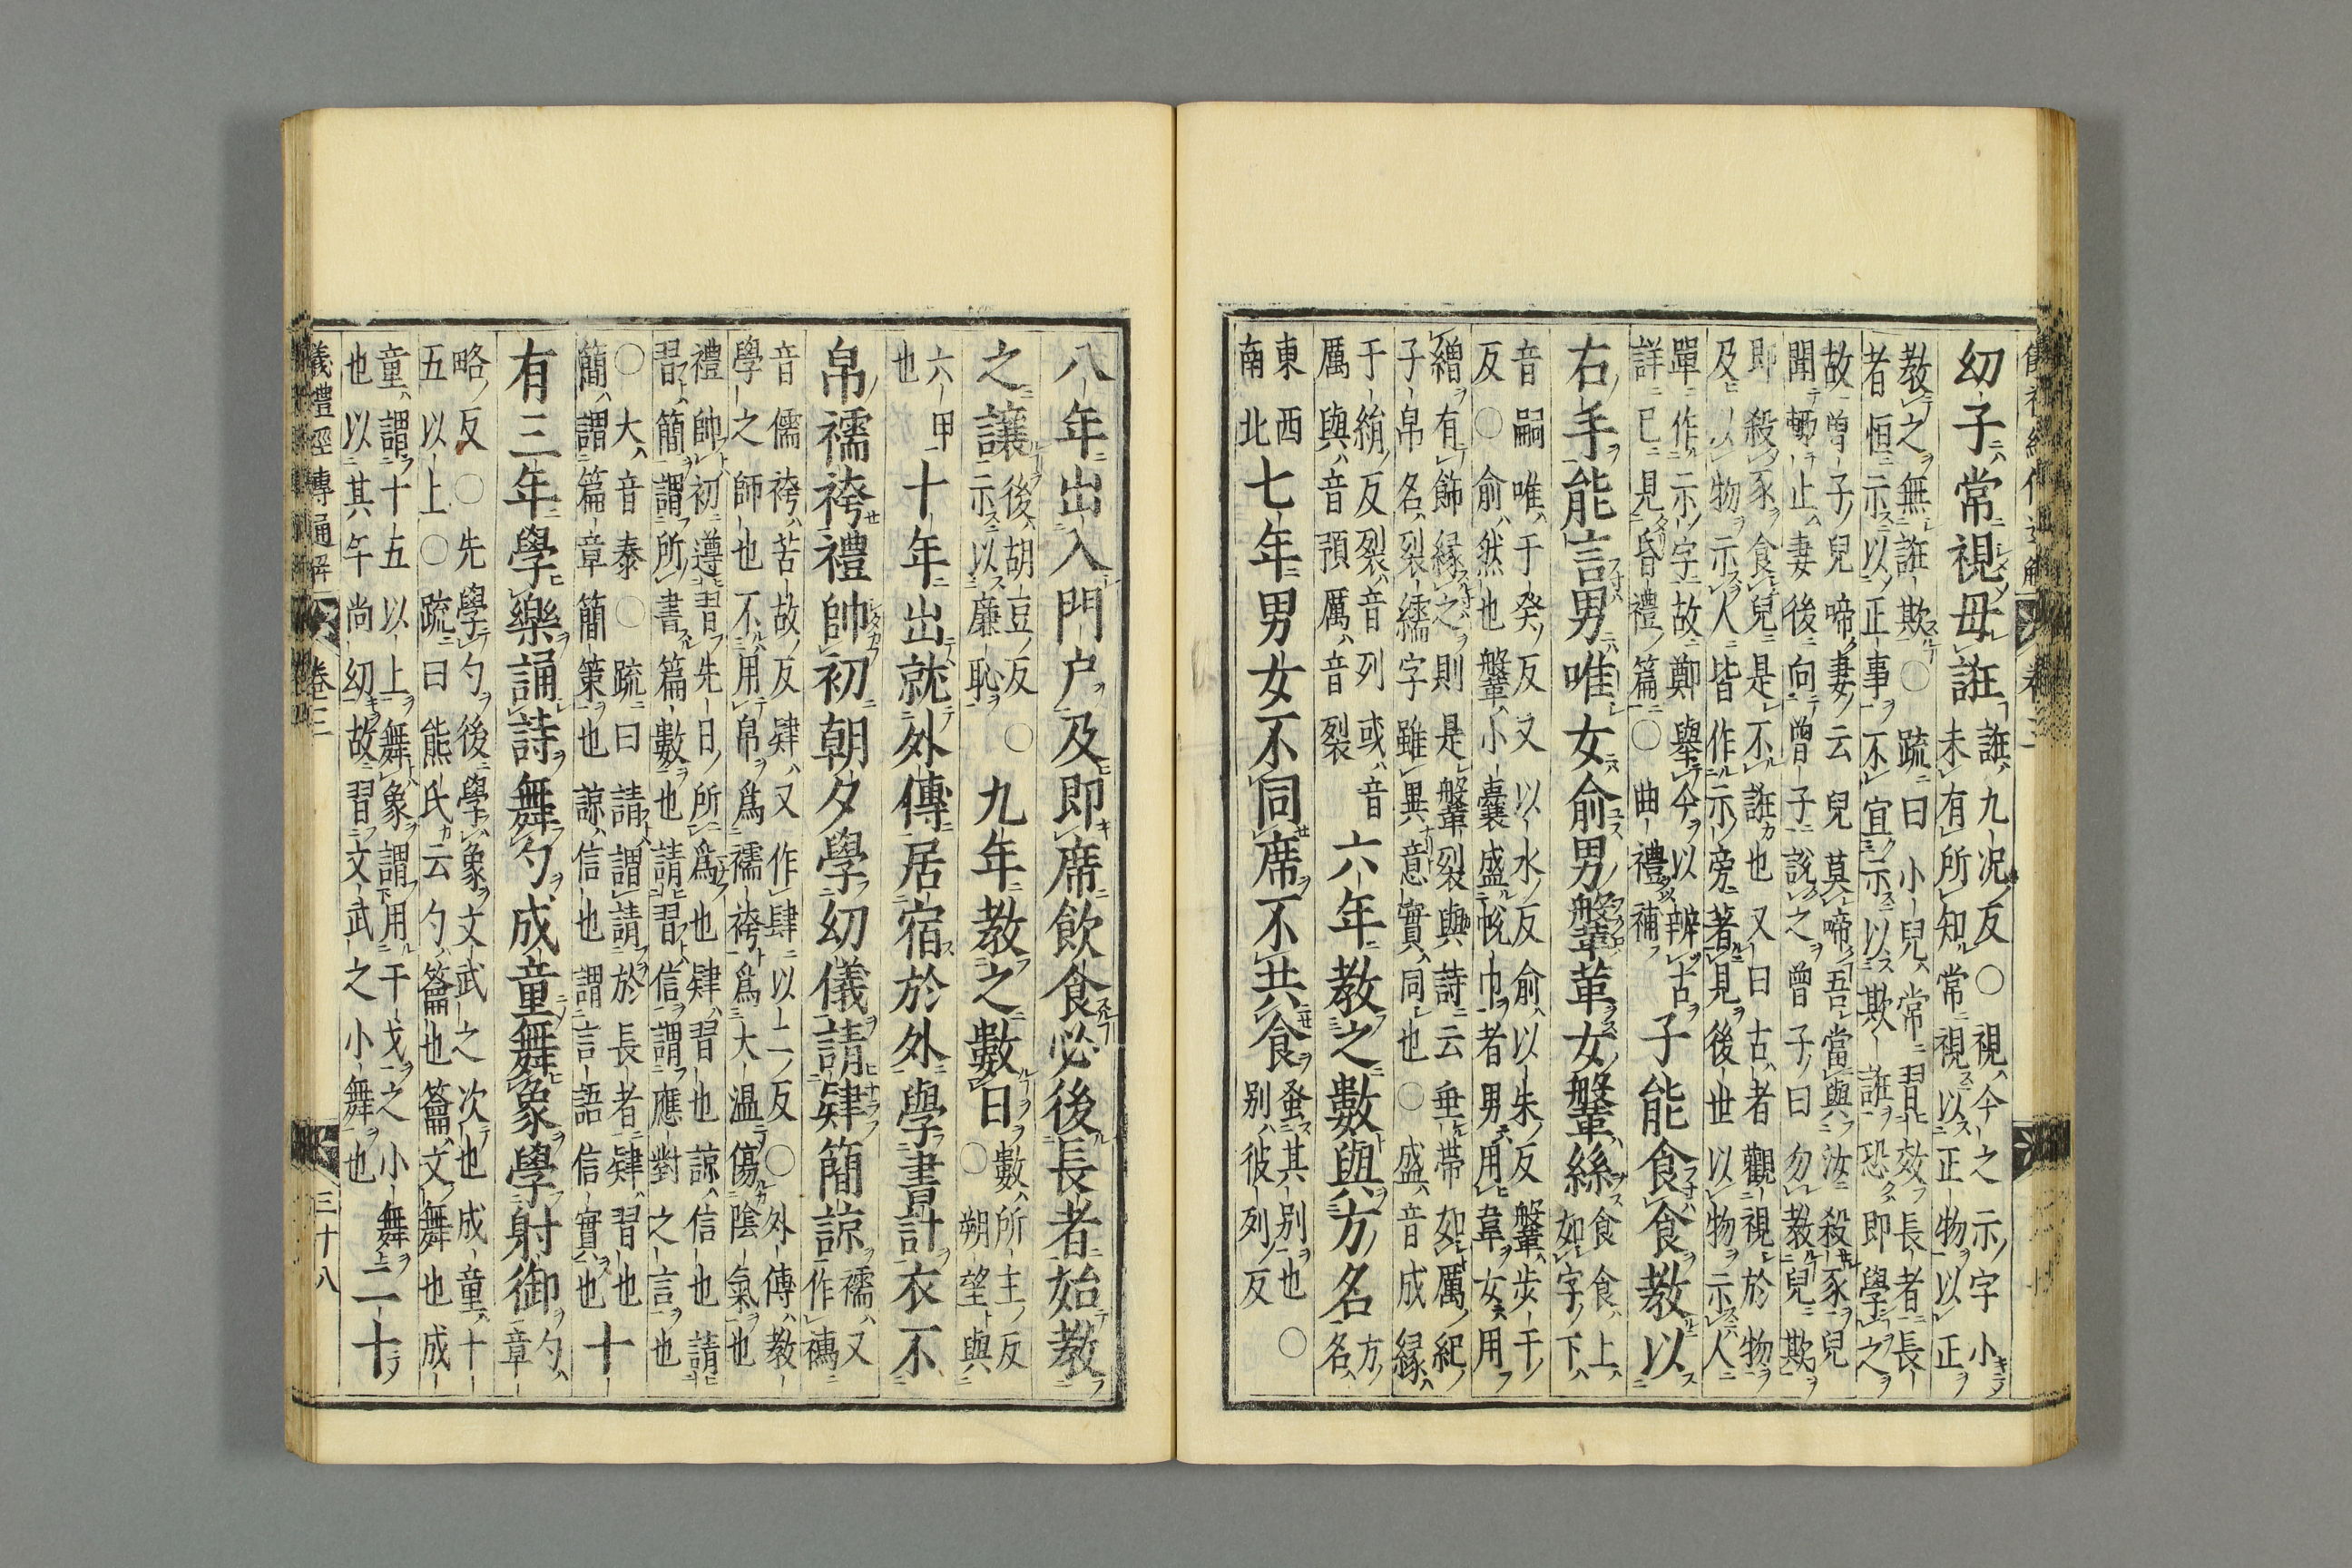 幼子常視母誑誑九况反〇視今之示字小
未有所知常視以正物以正
教之無誑欺〇疏曰小兒常習效長者長
者恒示以正事不宜示以欺誑恐即學之
故曾子兒啼妻云兒莫啼吾當與汝殺豕兒
聞輒止妻後向曾子說之曾子曰勿教兒欺
即殺豕食兒是不誑也又曰古者觀視於物
及以物示人皆作示旁著見後世以物示人
單作示字故鄭舉今以辨古
詳已見昏禮篇〇曲禮補子能食食教以
右手能言男唯女俞男鞶革女鞶絲食食上
如字下
音嗣唯于癸反又以水反俞以朱反鞶步干
反〇俞然也鞶小囊盛帨巾者男用韋女用
繒有飾緣之則是鞶裂與詩云垂帶如厲紀
子帛名裂繻字雖異意實同也〇盛音成緣
于絹反裂音列或音
厲與音預厲音裂六年教之數與方名方
名
東西
南北七年男女不同席不共食蚤其別也〇
別彼列反
八年出入門户及即席飲食必後長者始教
之讓後胡豆反〇
示以廉恥九年教之數日數所主反
〇朔望與
六甲
也十年出就外傅居宿於外學書計衣不
帛襦袴禮帥初朝夕學幼儀請肄簡諒襦又
作襦
音儒袴苦故反肄又作肆以二反〇外傅教
學之師也不用帛爲襦袴爲大温傷陰氣也
禮帥初遵習先日所爲也肄習也諒信也請
習簡謂所書篇數也請習信謂應對之言也
〇大音泰〇疏曰請謂請於長者肄習也
簡謂篇章簡策也諒信也謂言語信實也十
有三年學樂誦詩舞勺成童舞象學射御勺
章
略反〇先學勺後學象文武之次也成童十
五以上〇疏曰熊氏云勺籥也籥文舞也成
童謂十五以上舞象謂用干戈之小舞
也以其年尚幼故習文武之小舞也二十
儀禮經傳通解 卷三 三十八